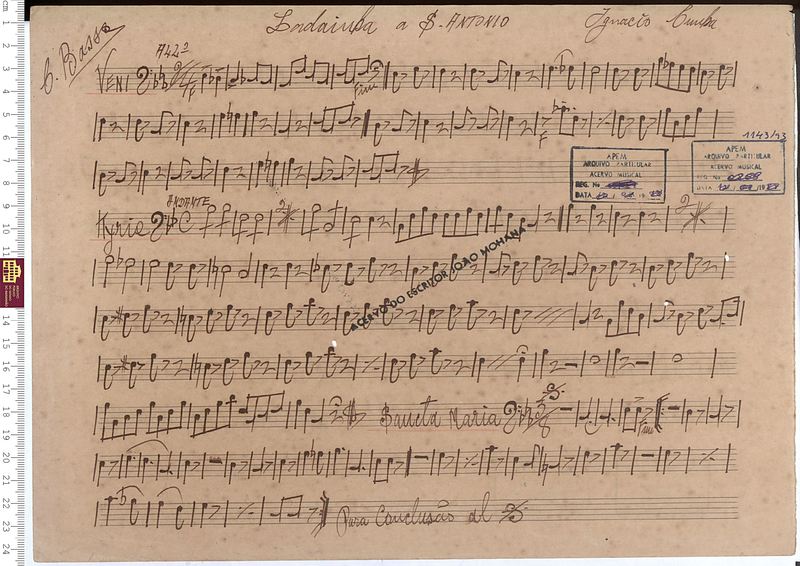 C. Basso
Ladainha a S. ANTONIO
Ignacio Cunha
VENI
All?
Fim
F
1143/93
APEM
ARQUIVO PARTICULAR
ACERVO MUSICAL
REG. No
DATA
APEM
ARQUIVO PARTICULAR
ACERVO MUSICAL
REG. No
DATA
Kyrie
ANDANTE
ACERVO DO ESCRITOR JOÃO MOHANA
Sancta Maria
Fim
Para Conclusão al